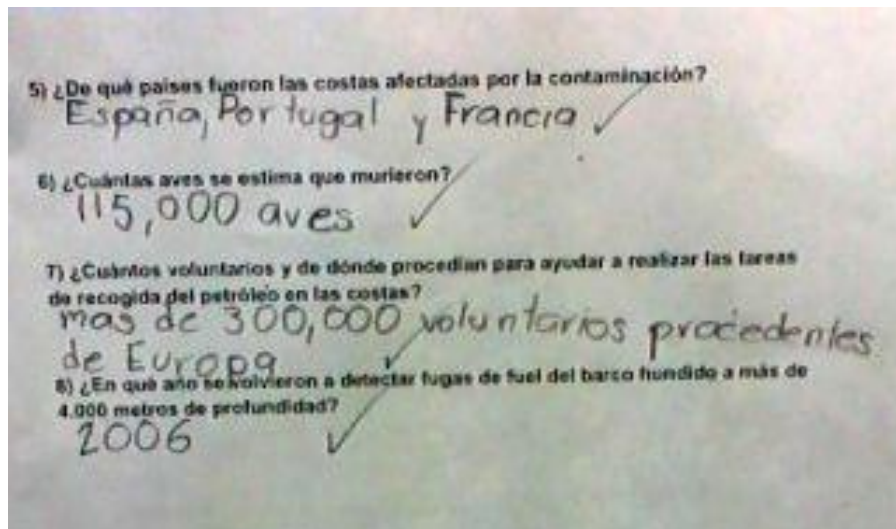 5) ¿De qué países fueron las costas afectadas por la contaminación?
España, Portugal y Francia
6) ¿Cuántas aves se estima que murieron?
115,000 aves
7) ¿Cuántos voluntarios y de dónde procedían para ayudar a realizar las tareas
de recogida del petróleo en las costas?
mas de 300,000 voluntarios procedentes
de Europa
8) ¿En qué año se volvieron a detectar fugas de fuel del barco hundido a más de
4.000 metros de profundidad?
2006